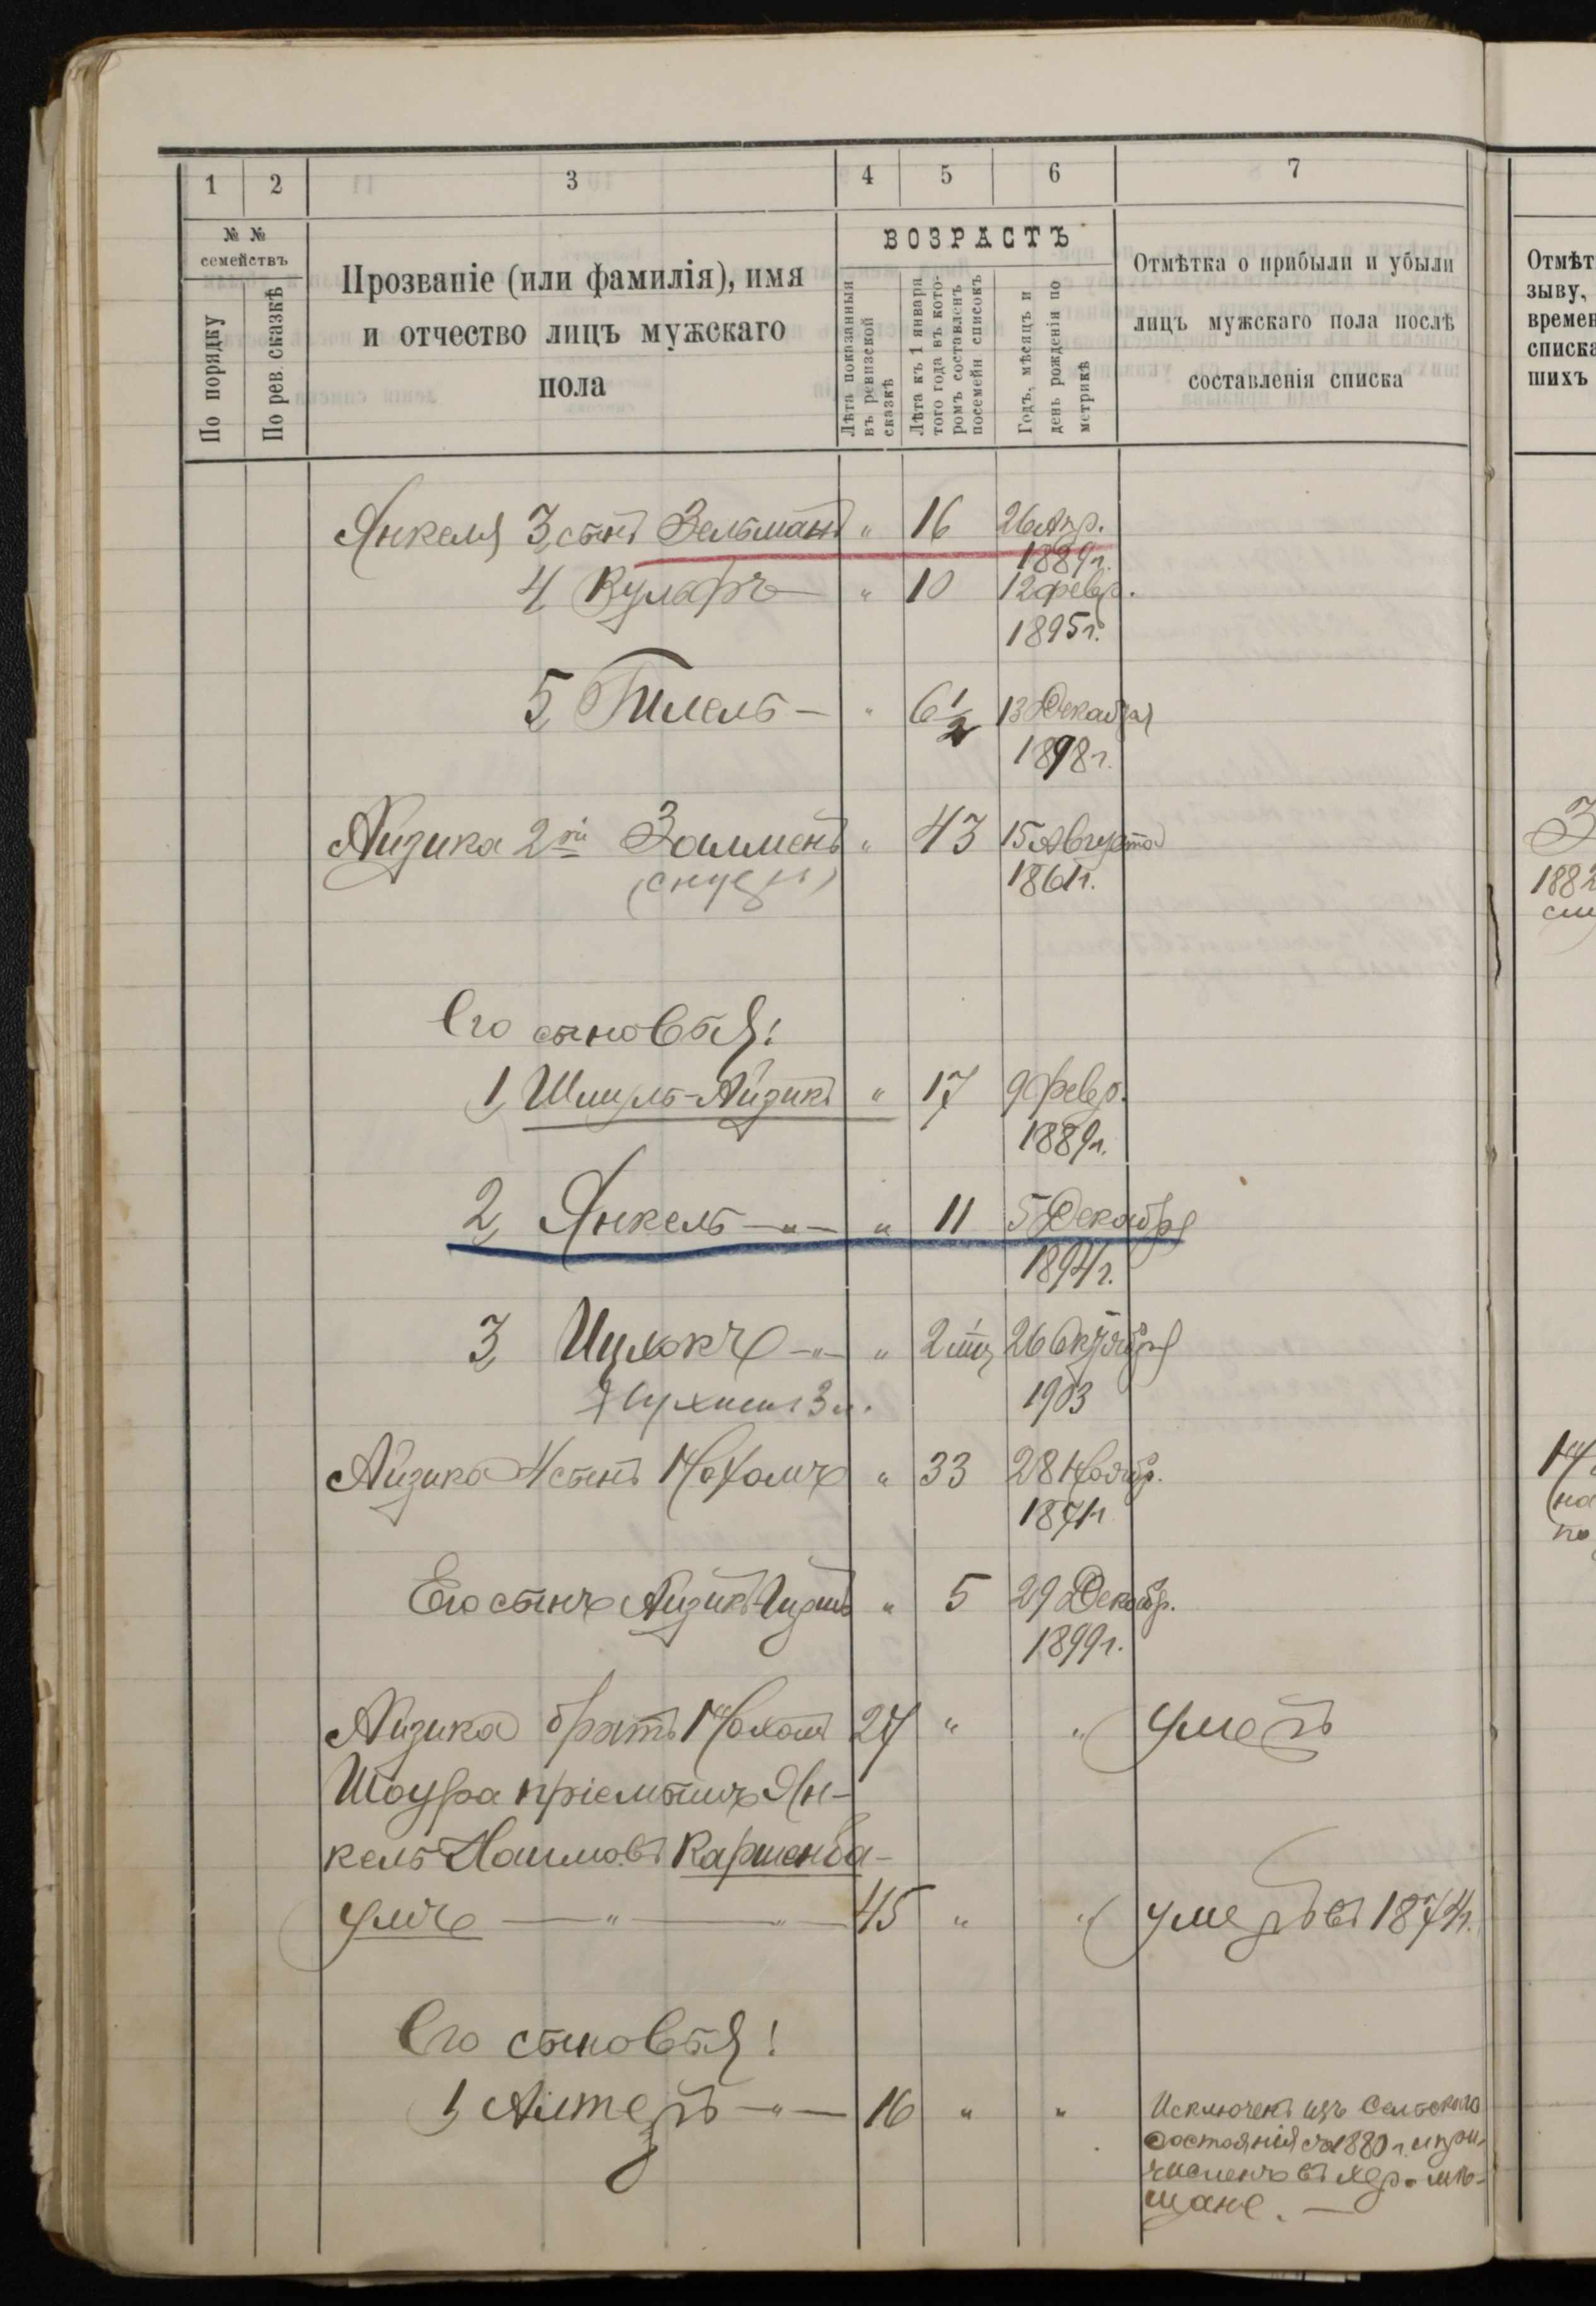 1 2 3 4 5 6 7
№ №
семействъ
По порядку
По рев. сказкѣ
Прозваніе (или фамилія), имя
и отчество лицъ мужскаго
пола
ВОЗРАСТЪ
Лѣта показанныя
въ ревизской
сказкѣ
Лѣта къ 1 января
того года въ кото-
ромъ составленъ
посемейн списокъ
Годъ, мѣсяцъ и
день рожденія по
метрикѣ
Отмѣтка о прибыли и убыли
лицъ мужскаго пола послѣ
составленія списка
Отмѣт
зыву,
времен
списка
шихъ
Янкеля 3, сынъ Зельманъ " 16 26 Апр.
1889 г.
4, Вульфъ " 10 12 февр.
1895 г.
5, Гилель — " 6 1/2 13 Декабря
1898 г.
Айзика 2й Залменъ " 43 15 Августа
1861 г.
1882
Его сыновья:
1, Шмуль-Айзикъ " 17 9 февр.
1889 г.
2, Янкель — " — " 11 5 Декабря
1894 г.
3, Ицхокъ — " — " 26 Октября
1903
Айзика 4 сынъ Нохомъ " 33 28 Ноябр.
1871 г.
Его сынъ Айзикъ-Гиршъ " 5 29 Декабр.
1899 г.
Айзика братъ Нохомъ 27 " " умеръ
пріемышъ Ян-
кель Хаимовъ Каршенба-
умъ — " — " — 45 " " умеръ въ 1874 г.
Его сыновья:
1, Алтеръ — " — 16 " " Исключенъ изъ Сельскаго
состоянія съ 1880 г. и при-
численъ въ Хер. мѣ-
щане. —